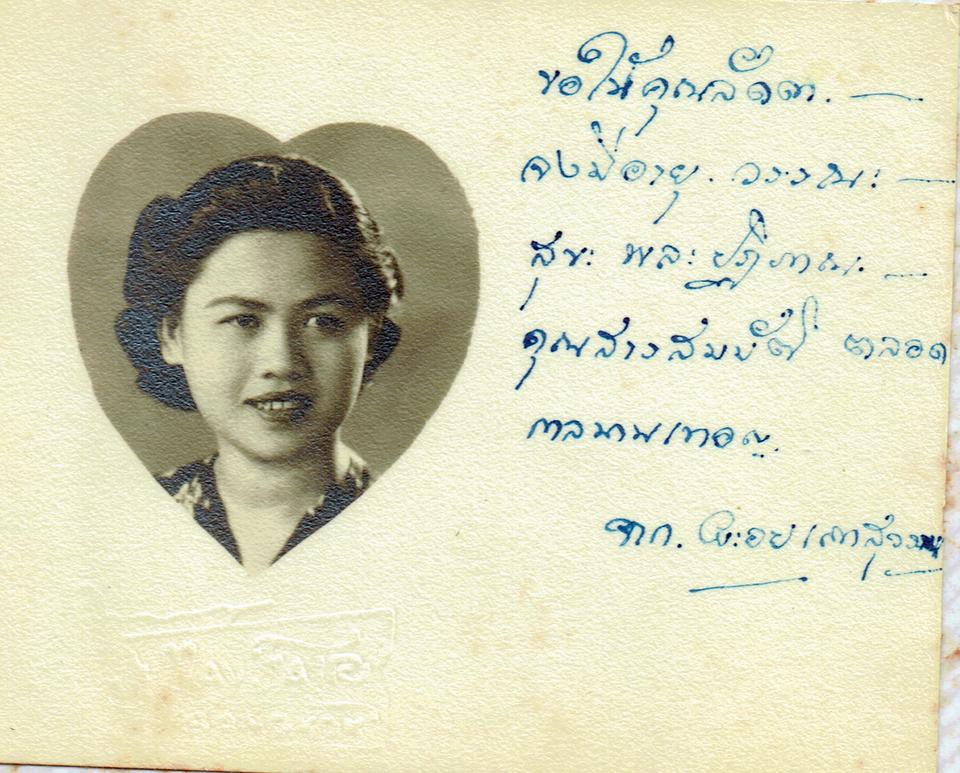 ขอให้คุณลัดดา. —
จงมีอายุ. วรรณะ —
สุขะ พละ ปฏิภาณะ —
คุณสารสมบัติ ตลอด
กาลนานเทอญ.
จาก.